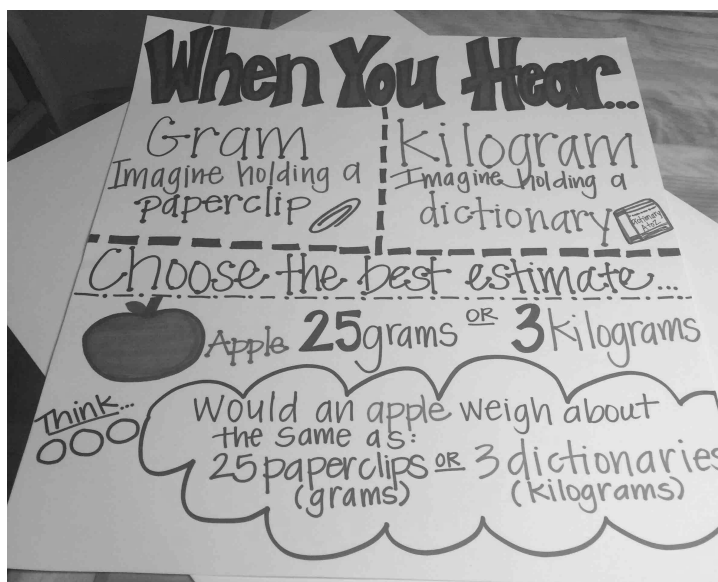 When You Hear...
Gram
Imagine holding a
paperclip
kilogram
Imagine holding a
dictionary
Dictionary
A to Z
Choose the best estimate...
Apple 25 grams OR 3 kilograms
Think...
Would an apple weigh about
the same as:
25 paperclips OR 3 dictionaries
(grams) (kilograms)